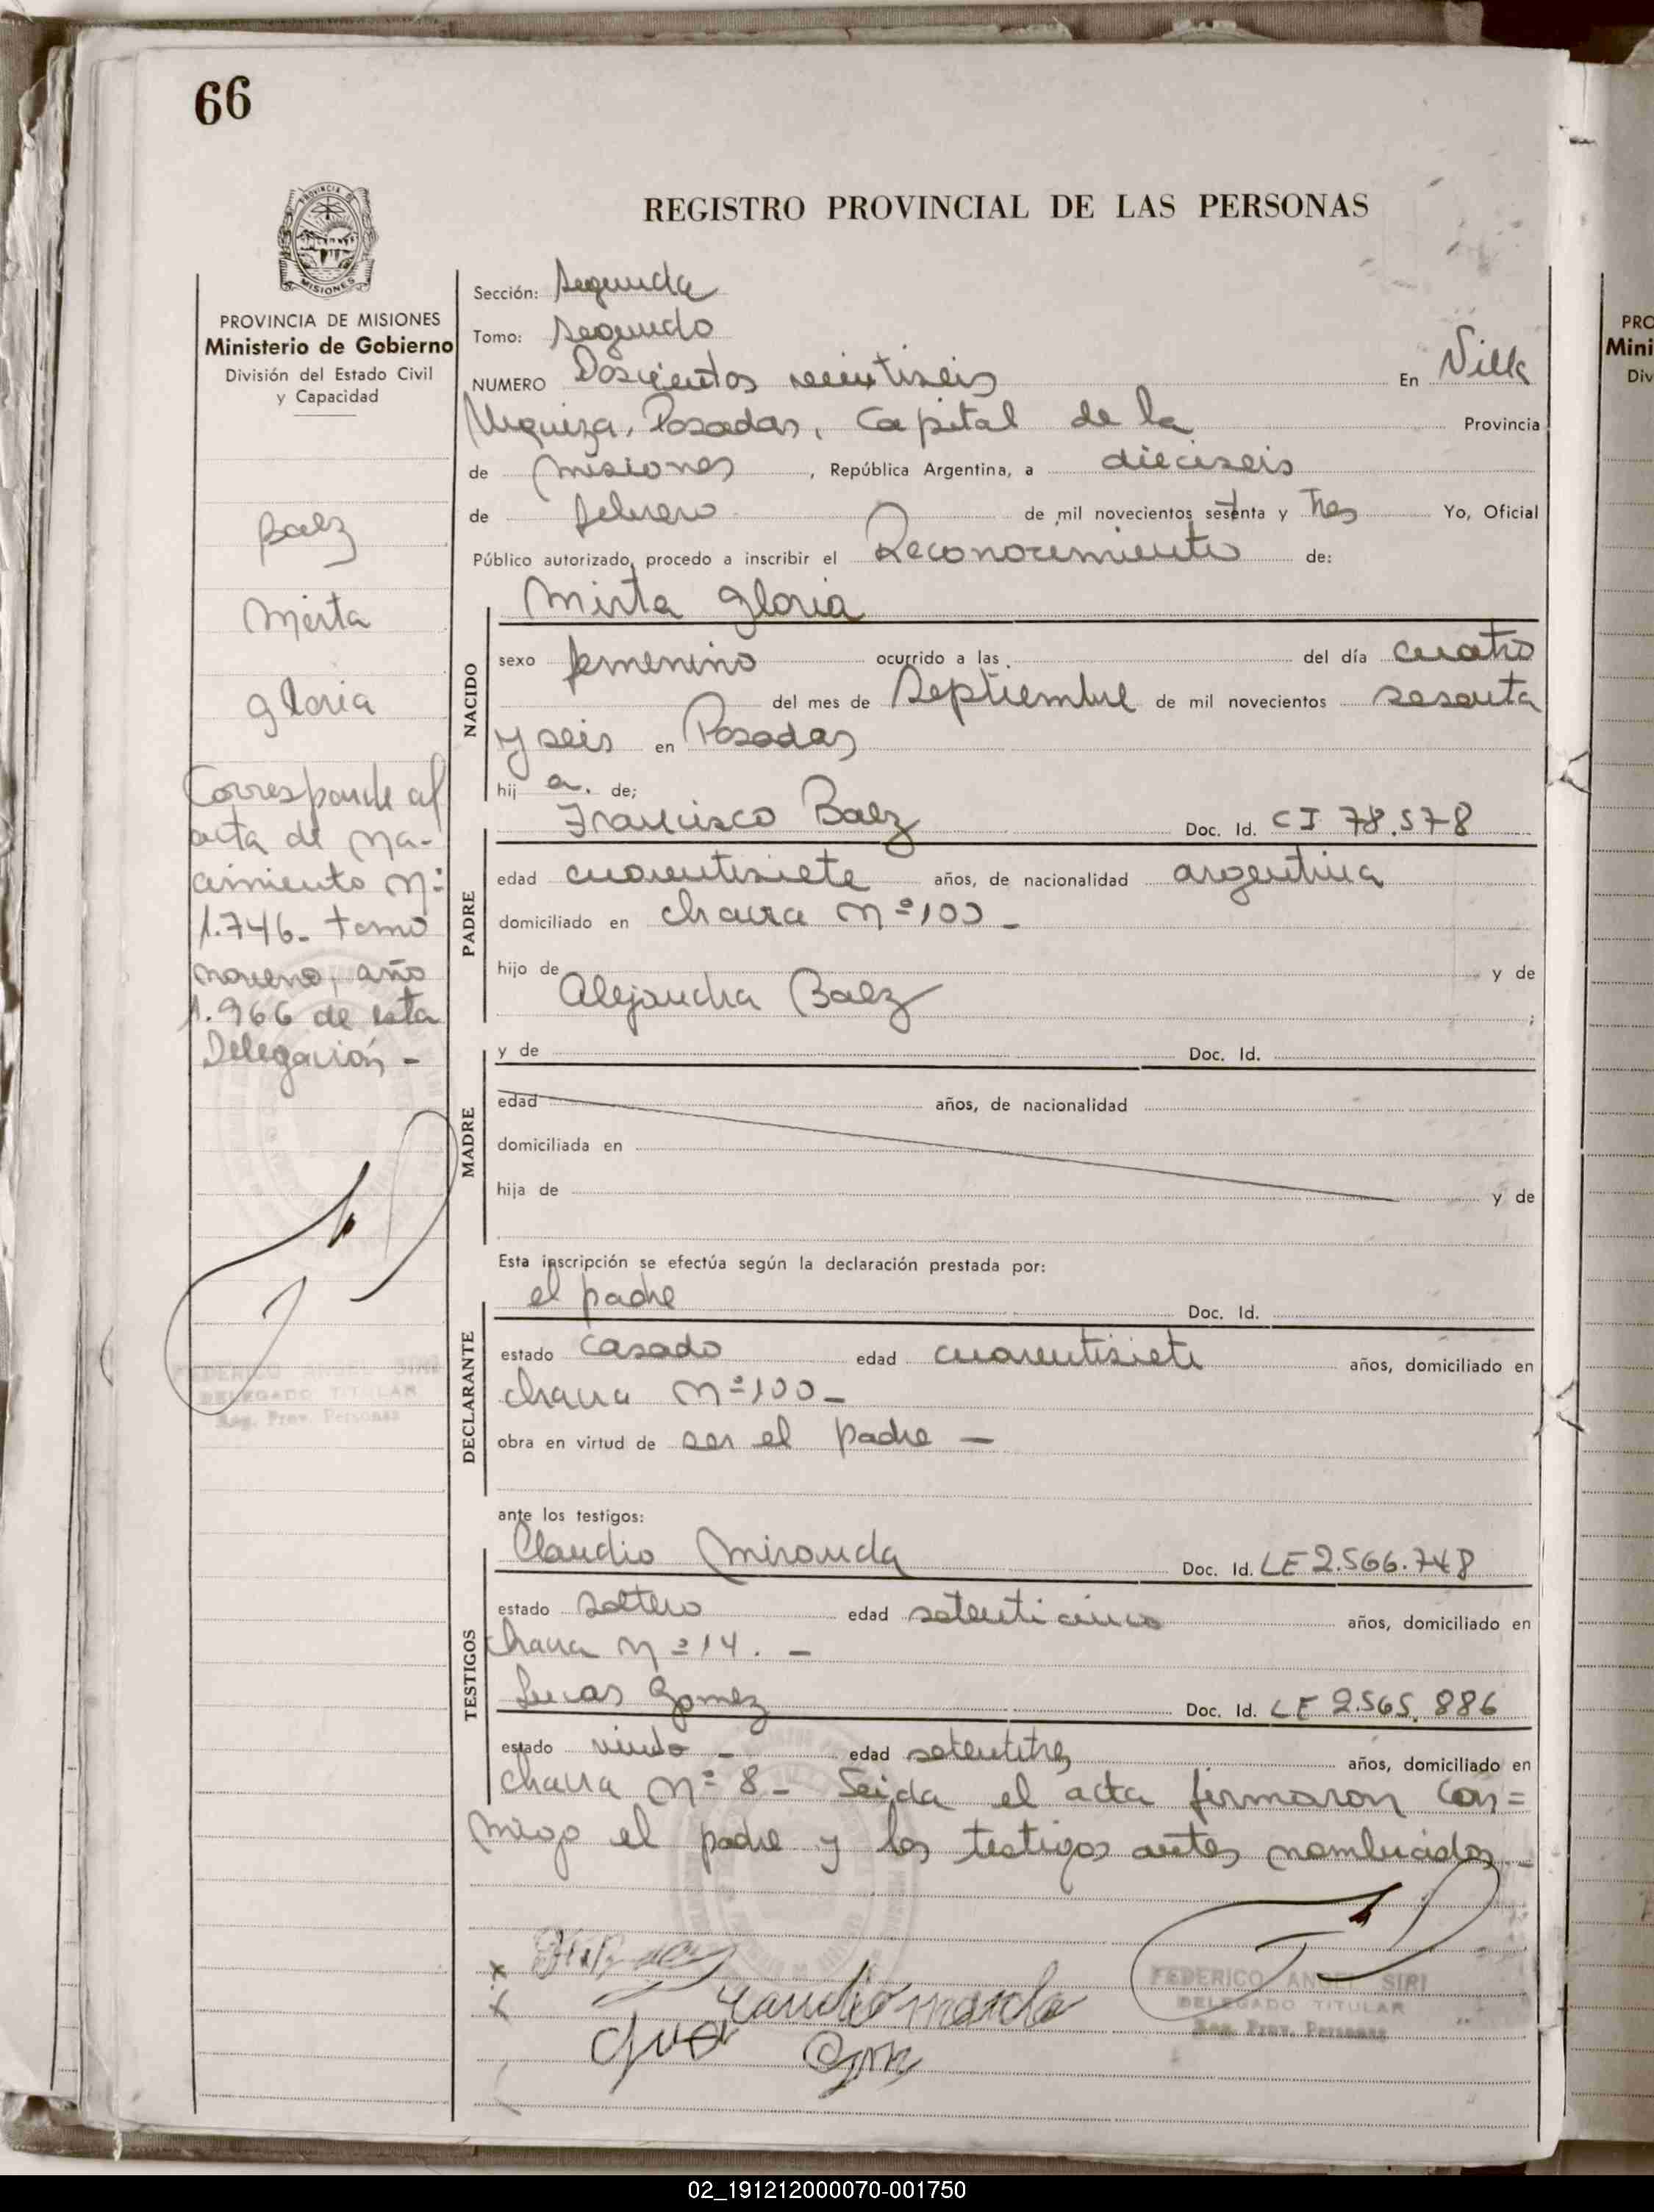 66
REGISTRO PROVINCIAL DE LAS PERSONAS
PROVINCIA DE MISIONES
MISIONES
PROVINCIA DE MISIONES
Ministerio de Gobierno
División del Estado Civil
y Capacidad
Baez
Mirta
Gloria
Corresponde al
acta de na-
cimiento Nº:
1.746- tomo
noveno, año
1.966 de esta
Delegación -
FEDERICO ANGEL SIRI
DELEGADO TITULAR
Reg. Prov. Personas
Sección: Segunda
Tomo: segundo
NUMERO Doscientos veintiseis En Villa
Urquiza, Posadas, Capital de la Provincia
de Misiones, República Argentina, a dieciseis
de febrero de mil novecientos setenta y Tres Yo, Oficial
Público autorizado, procedo a inscribir el Reconocimiento de:
Mirta Gloria
NACIDO
sexo femenino ocurrido a las del día cuatro
del mes de Septiembre de mil novecientos sesenta
y seis en Posadas
hij a. de;
Francisco Baez Doc. Id. CI 78.578
PADRE
edad cuarentisiete años, de nacionalidad argentina
domiciliado en chacra Nº 100 -
hijo de y de
Alejandra Baez ;
y de Doc. Id.
MADRE
edad años, de nacionalidad
domiciliada en
hija de y de
Esta inscripción se efectúa según la declaración prestada por:
el padre Doc. Id.
DECLARANTE
estado casado edad cuarentisiete años, domiciliado en
chacra Nº 100 -
obra en virtud de ser el padre -
ante los testigos:
Claudio Miranda Doc. Id. LE 2.566.748
TESTIGOS
estado soltero edad setenticinco años, domiciliado en
chacra Nº 14. -
Lucas Gomez Doc. Id. LE 2.565.886
estado viudo - edad setentitres años, domiciliado en
chacra Nº 8 - Leida el acta firmaron con=
migo el padre y los testigos antes nombrados. -
FEDERICO ANGEL SIRI
DELEGADO TITULAR
Reg. Prov. Personas
PRO
Mini
Div
02_191212000070-001750